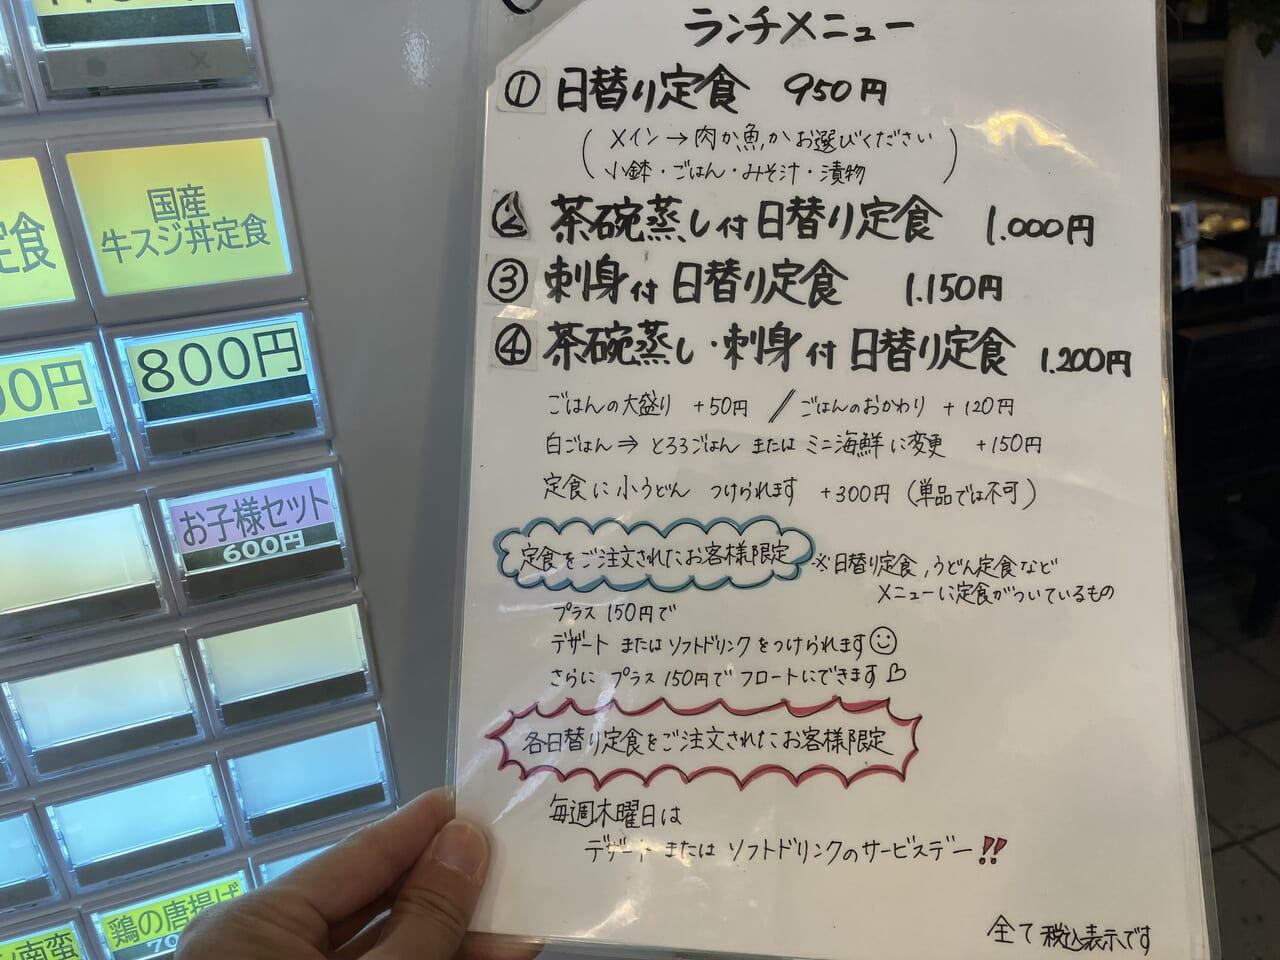 国産
牛スジ丼定食
定食
800円
00円
お子様セット
600円
鶏の唐揚げ
南蛮
ランチメニュー
① 日替り定食 950円
(メイン→肉か魚かお選びください
小鉢・ごはん・みそ汁・漬物)
② 茶碗蒸し付日替り定食 1.000円
③ 刺身付日替り定食 1.150円
④ 茶碗蒸し・刺身付日替り定食 1.200円
ごはんの大盛り +50円 // ごはんのおかわり +120円
白ごはん⇒とろろごはん または ミニ海鮮に変更 +150円
定食に小うどん つけられます +300円 (単品では不可)
定食をご注文されたお客様限定 ※日替り定食,うどん定食など
メニューに定食がついているもの
プラス150円で
デザート または ソフトドリンクをつけられます
さらに プラス150円で フロートにできます
各日替り定食をご注文されたお客様限定
毎週木曜日は
デザート または ソフトドリンクのサービスデー!!
全て税込表示です